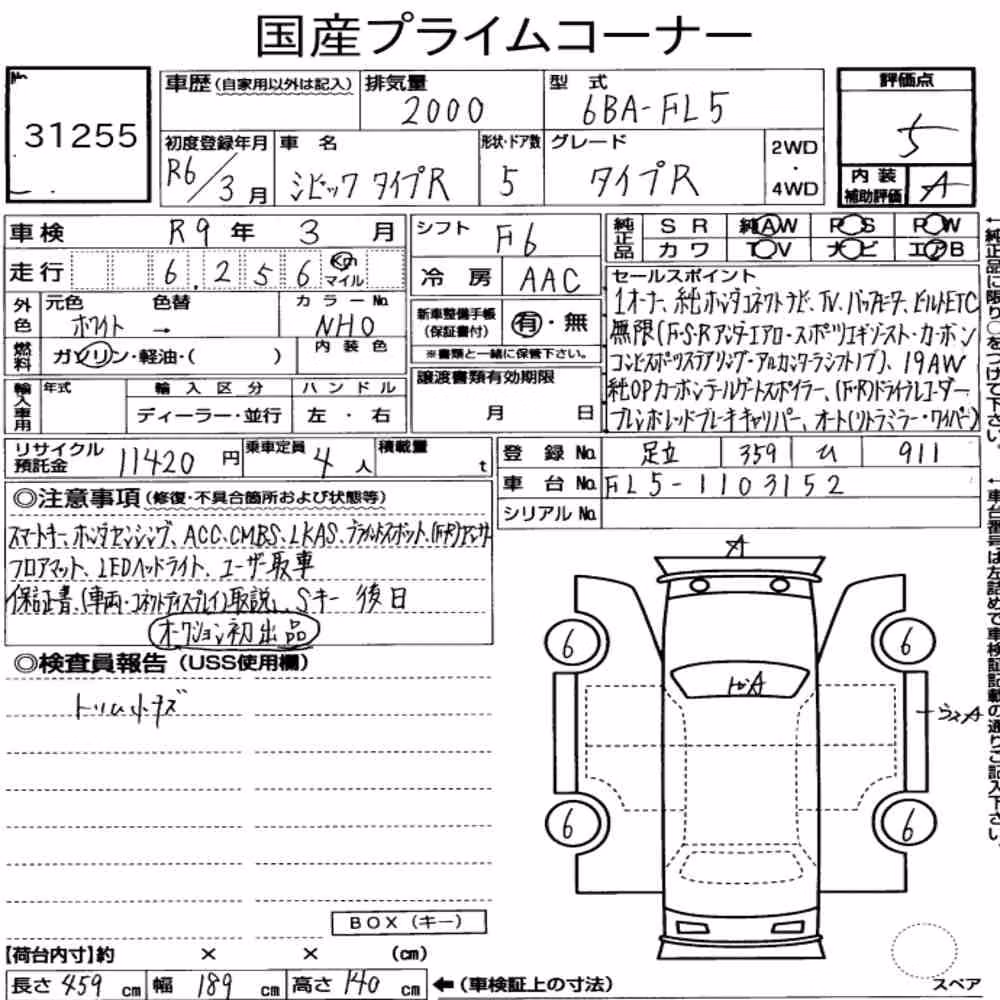 国産プライムコーナー
No.
31255
車歴(自家用以外は記入)
排気量
2000
型式
6BA-FL5
評価点
5
初度登録年月
R6/3月
車名
シビック タイプR
形状・ドア数
5
グレード
タイプR
2WD
・
4WD
内装
補助評価
A
車検 R9年 3月
走行 6,256 Km マイル
外色
元色 ホワイト
色替 →
カラーNo.
NH0
燃料
ガソリン・軽油・( )
内装色
輸入車用
年式
輸入区分
ディーラー・並行
ハンドル
左・右
シフト F6
冷房 AAC
新車整備手帳
(保証書付)
有・無
※書類と一緒に保管下さい。
譲渡書類有効期限
月 日
純正品
SR 純AW PS PW
カワ TV ナビ エアB
セールスポイント
1オーナ、純ホンダコネクトナビ、TV、バックモニター、ビルトETC
無限(F・S・Rアンダーエアロ・スポーツエキゾースト・カーボン
コンビスポーツステアリング・アルカンターラシフトノブ)、19AW
純OPカーボンテールゲートスポイラー、(F・R)ドライブレコーダー
ブレンボレッドブレーキキャリパー、オート(リトラミラー・ワイパー)
リサイクル
預託金
11420円
乗車定員 4人
積載量 t
登録No. 足立 359 ひ 911
車台No. FL5-1103152
シリアルNo.
◎注意事項(修復・不具合箇所および状態等)
スマートキー、ホンダセンシング、ACC、CMBS、LKAS、ブラインドスポット、(F・R)センサー
フロアマット、LEDヘッドライト、ユーザー買取車
保証書、(車両・コネクトディスプレイ)取説、Sキー後日
オークション初出品
◎検査員報告(USS使用欄)
トリム小キズ
A
トビA
ウスA
6
6
6
6
BOX(キー)
【荷台内寸】約 × × (cm)
長さ459cm 幅189cm 高さ140cm
←(車検証上の寸法)
スペア
←純正品に限り○をつけて下さい。
←車台番号は左詰めで車検証記載の通りご記入下さい。